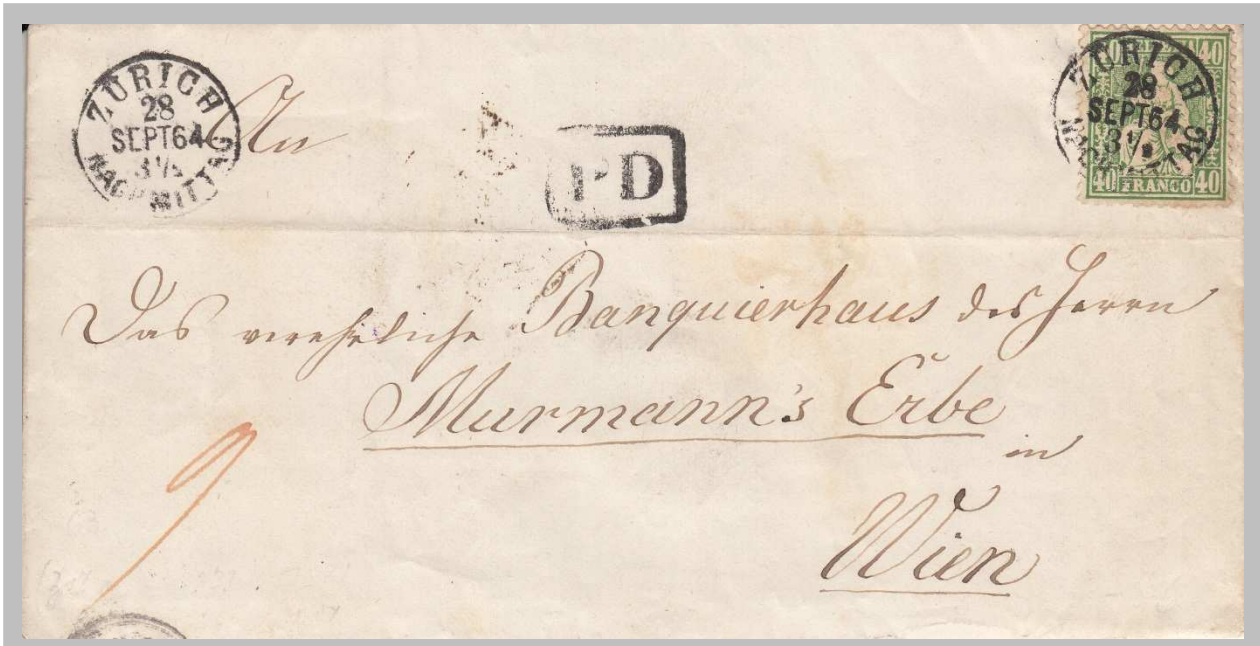 ZÜRICH
28
SEPT 64
3 1/2
NACHMITTAG
An
PD
40 40
ZÜRICH
28
SEPT 64
3 1/2
NACHMITTAG
40 FRANCO 40
Das verehrliche Banquierhaus des Herrn
Murmann's Erbe
in
Wien
9